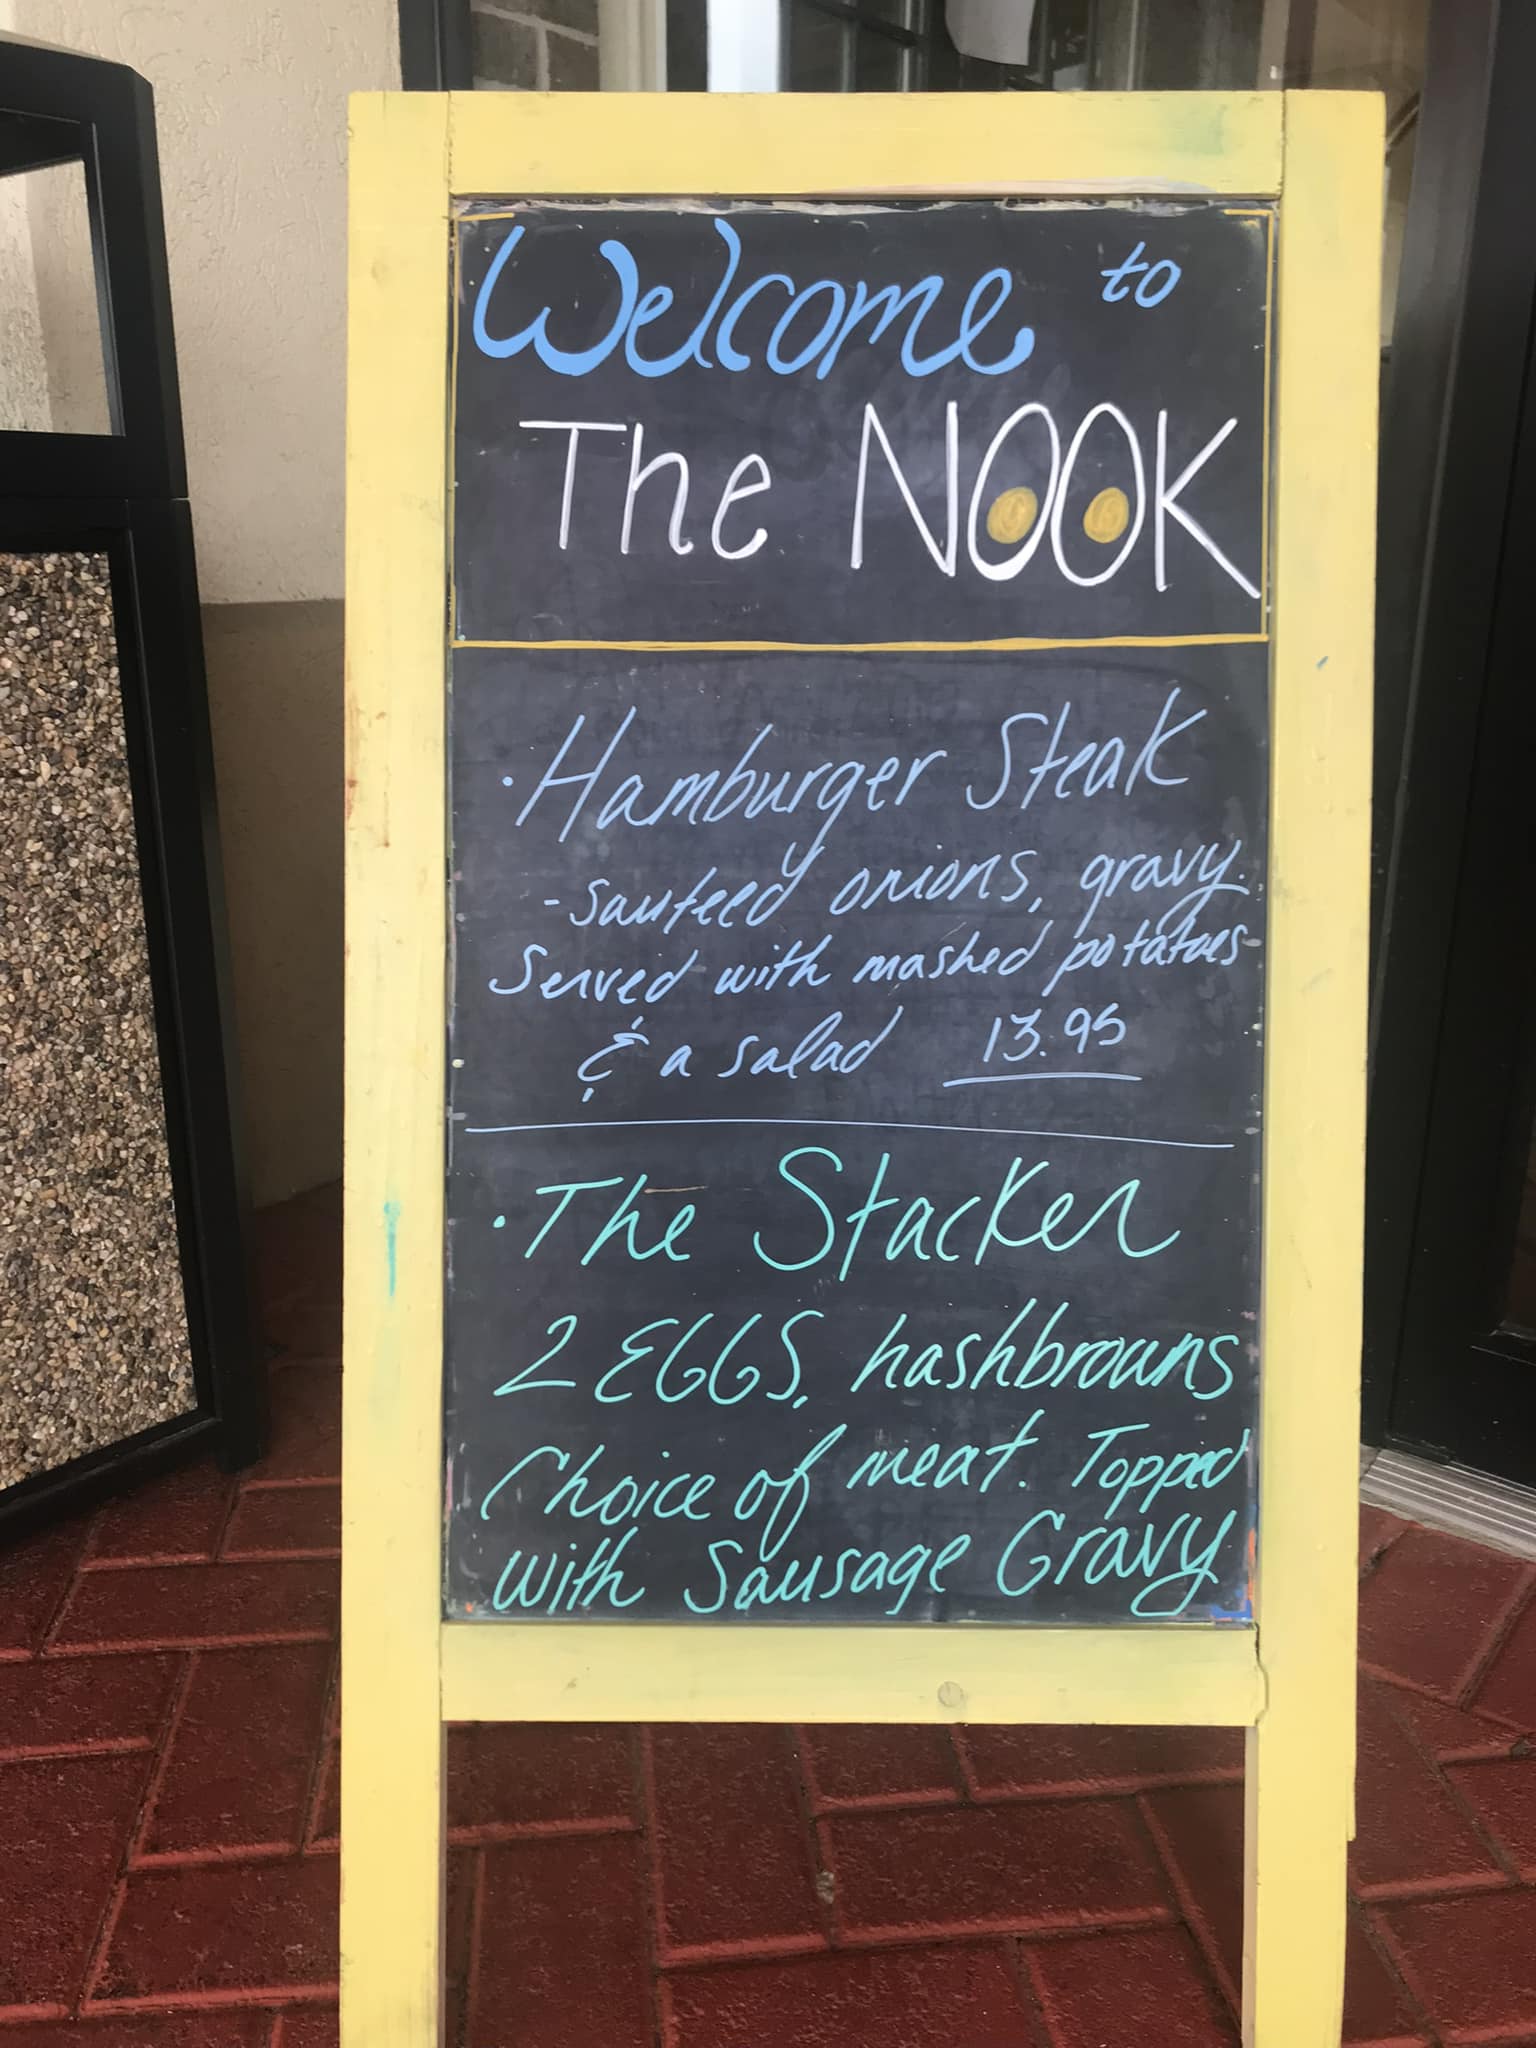 Welcome to
The NOOK
· Hamburger Steak
- Sauteed onions, gravy.
Served with mashed potatoes
& a salad 13.95
· The Stacker
2 EGGS, hashbrowns
Choice of meat. Topped
with Sausage Gravy